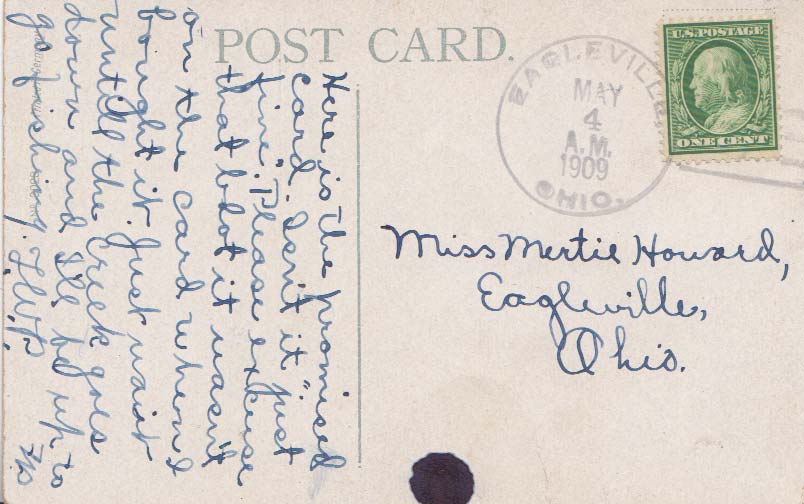 POST CARD.
EAGLEVILLE,
MAY
4
A.M.
1909
OHIO.
U.S. POSTAGE
ONE CENT
Miss Mertie Howard,
Eagleville,
Ohio.
Here is the promised
card. Isn't it "just
fine". Please excuse
that blot it wasn't
on the card when I
bought it. Just wait
untill the creek goes
down and I'll be up to
go fishing.